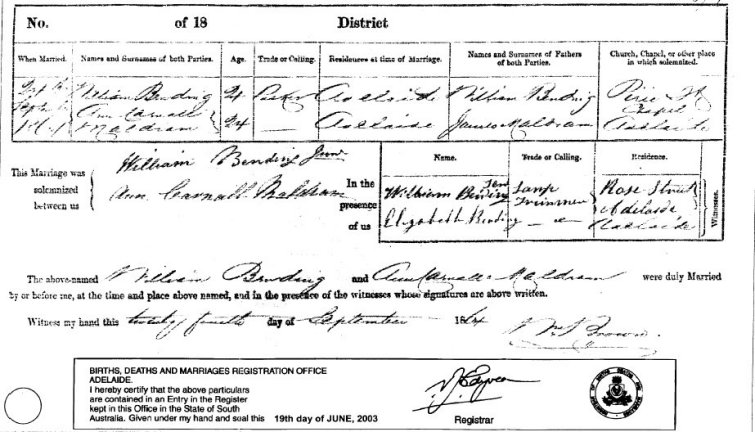 No. of 18 District
When Married. Names and Surnames of both Parties. Age. Trade or Calling. Residences at time of Marriage. Names and Surnames of Fathers of both Parties. Church, Chapel, or other place in which solemnized.
William Bending 24 Adelaide William Bending Pirie St Chapel
Ann Carnall Maldram 24 — Adelaide James Maldram Adelaide
This Marriage was solemnized between us
William Bending Junr
Ann Carnall Maldram
In the presence of us
Name. Trade or Calling. Residence.
William Bending Sen Lamp Trimmer Rose Street Adelaide
Elizabeth Bending — Adelaide
Witnesses.
The above-named William Bending and Ann Carnall Maldram were duly Married
by or before me, at the time and place above named, and in the presence of the witnesses whose signatures are above written.
Witness my hand this twenty fourth day of September 1864
BIRTHS, DEATHS AND MARRIAGES REGISTRATION OFFICE
ADELAIDE.
I hereby certify that the above particulars
are contained in an Entry in the Register
kept in this Office in the State of South
Australia. Given under my hand and seal this 19th day of JUNE, 2003
Registrar